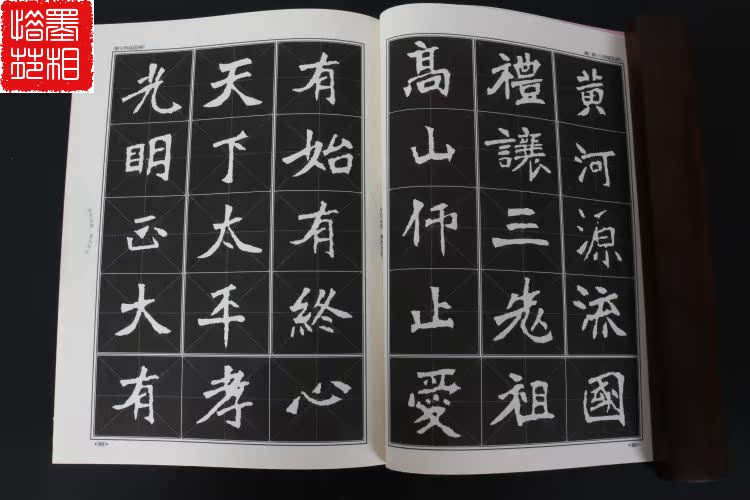 墨相
黄河源流
禮讓三先
高山仰止
愛祖國
有始有終
天下太平
光明正大
有孝心